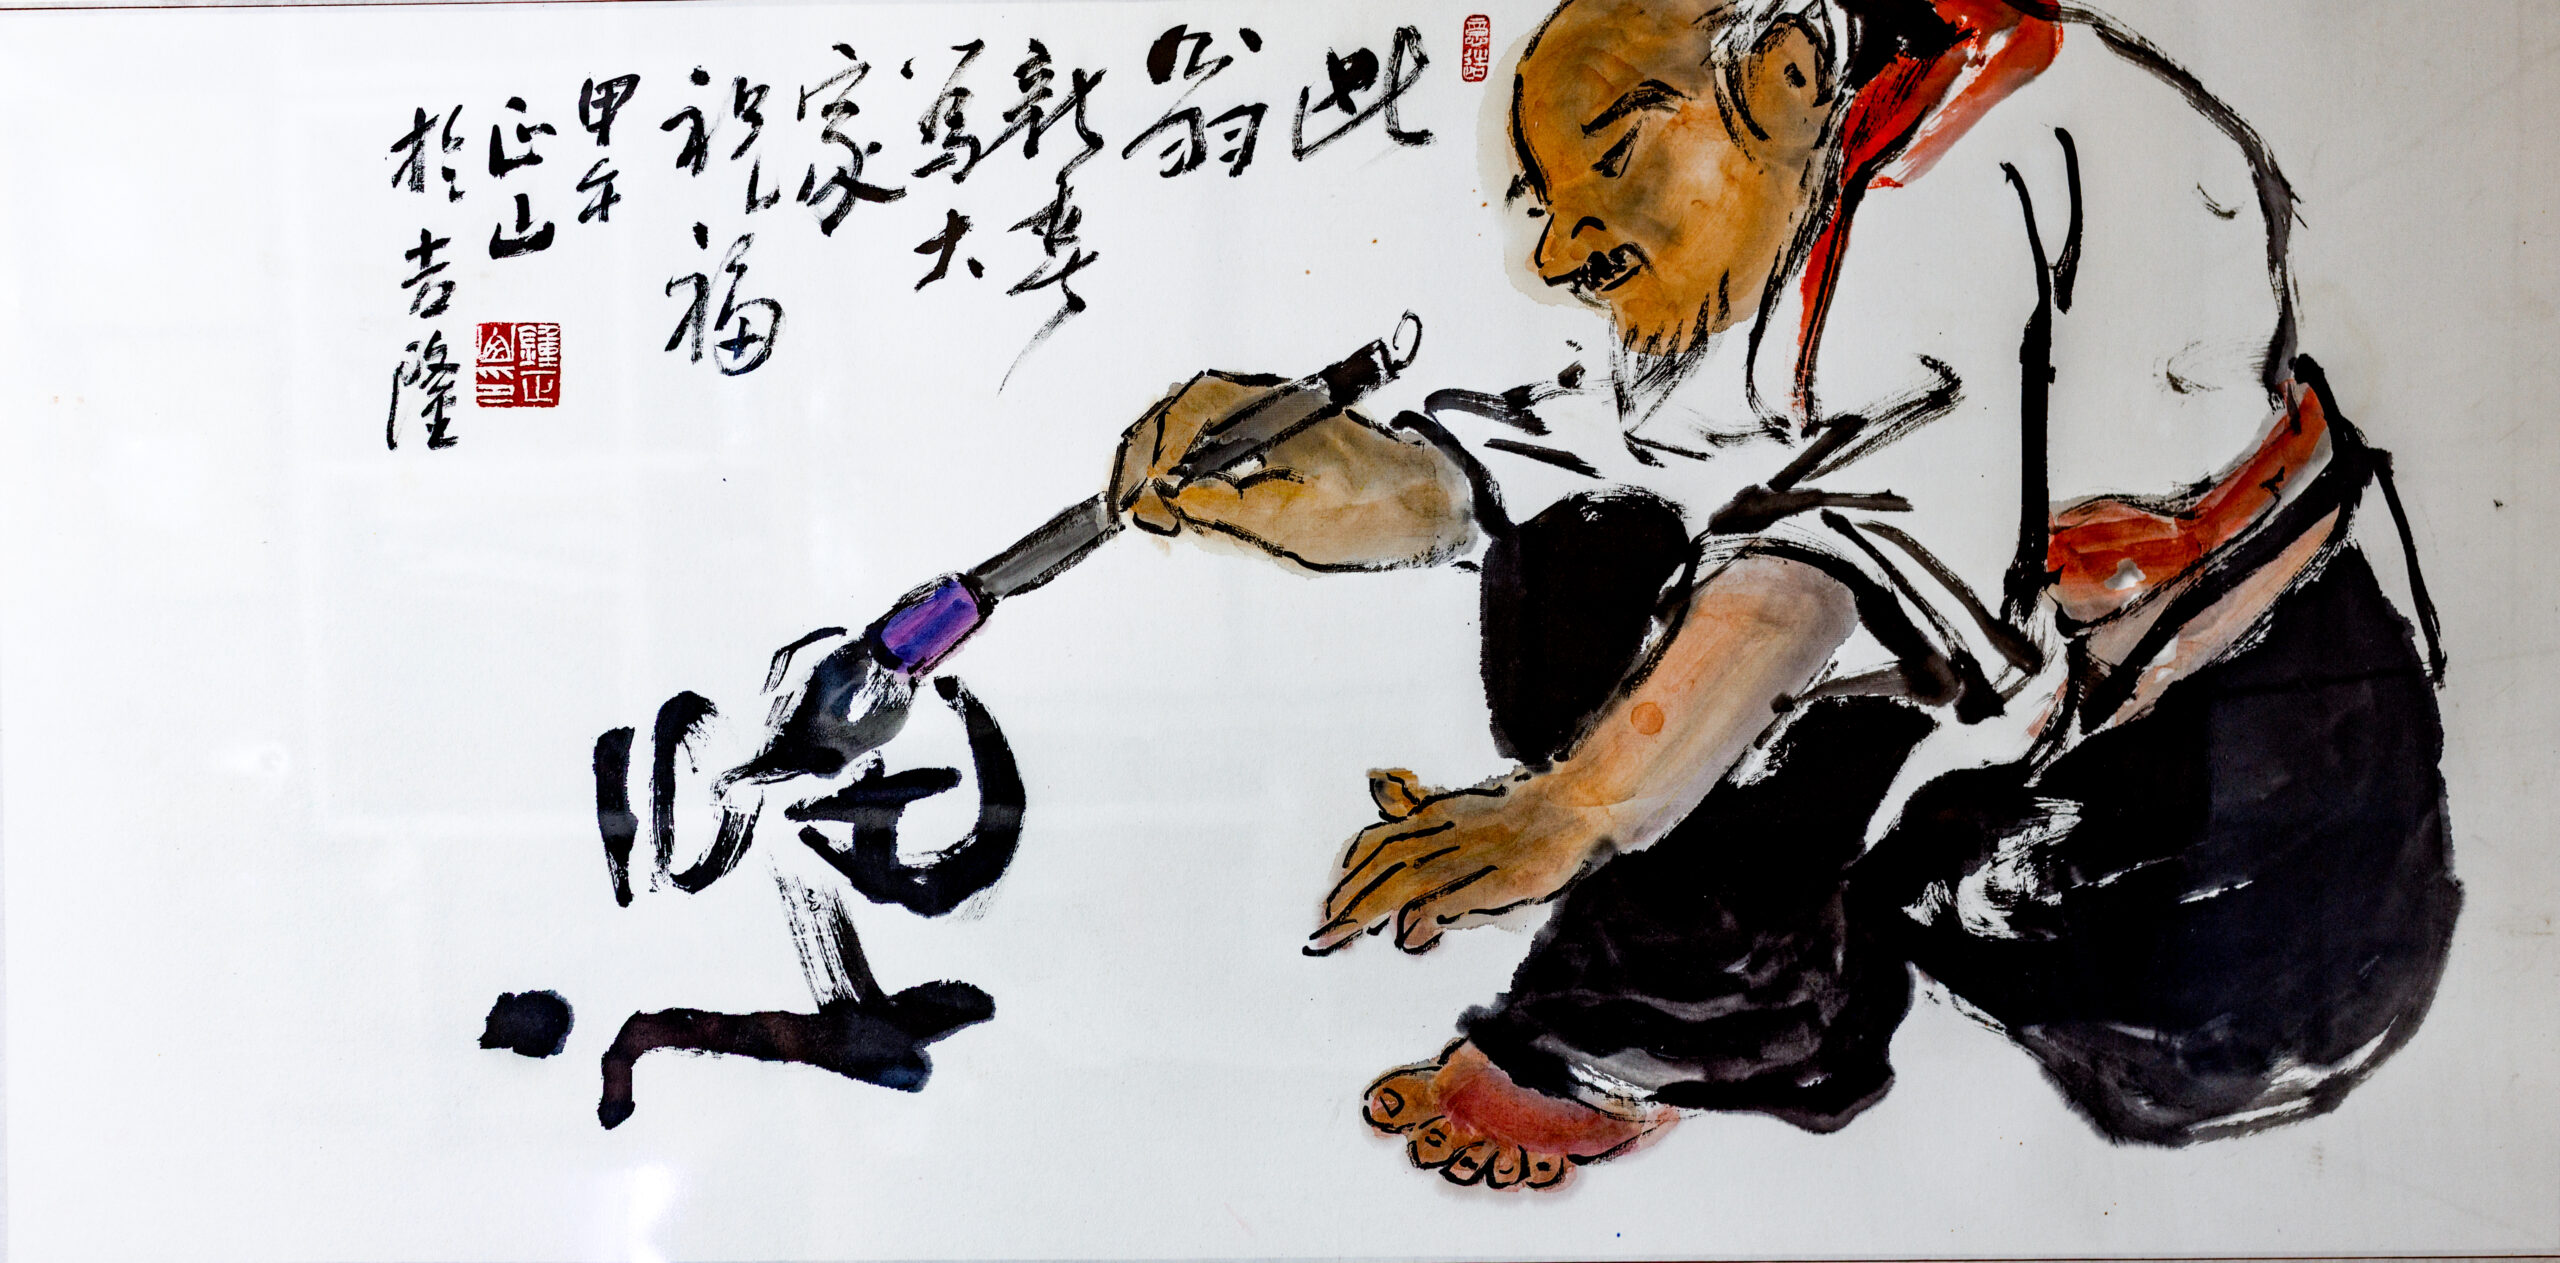 此
翁
新春
為大
家
祝福
甲午
正山
於吉隆
鍾正山印